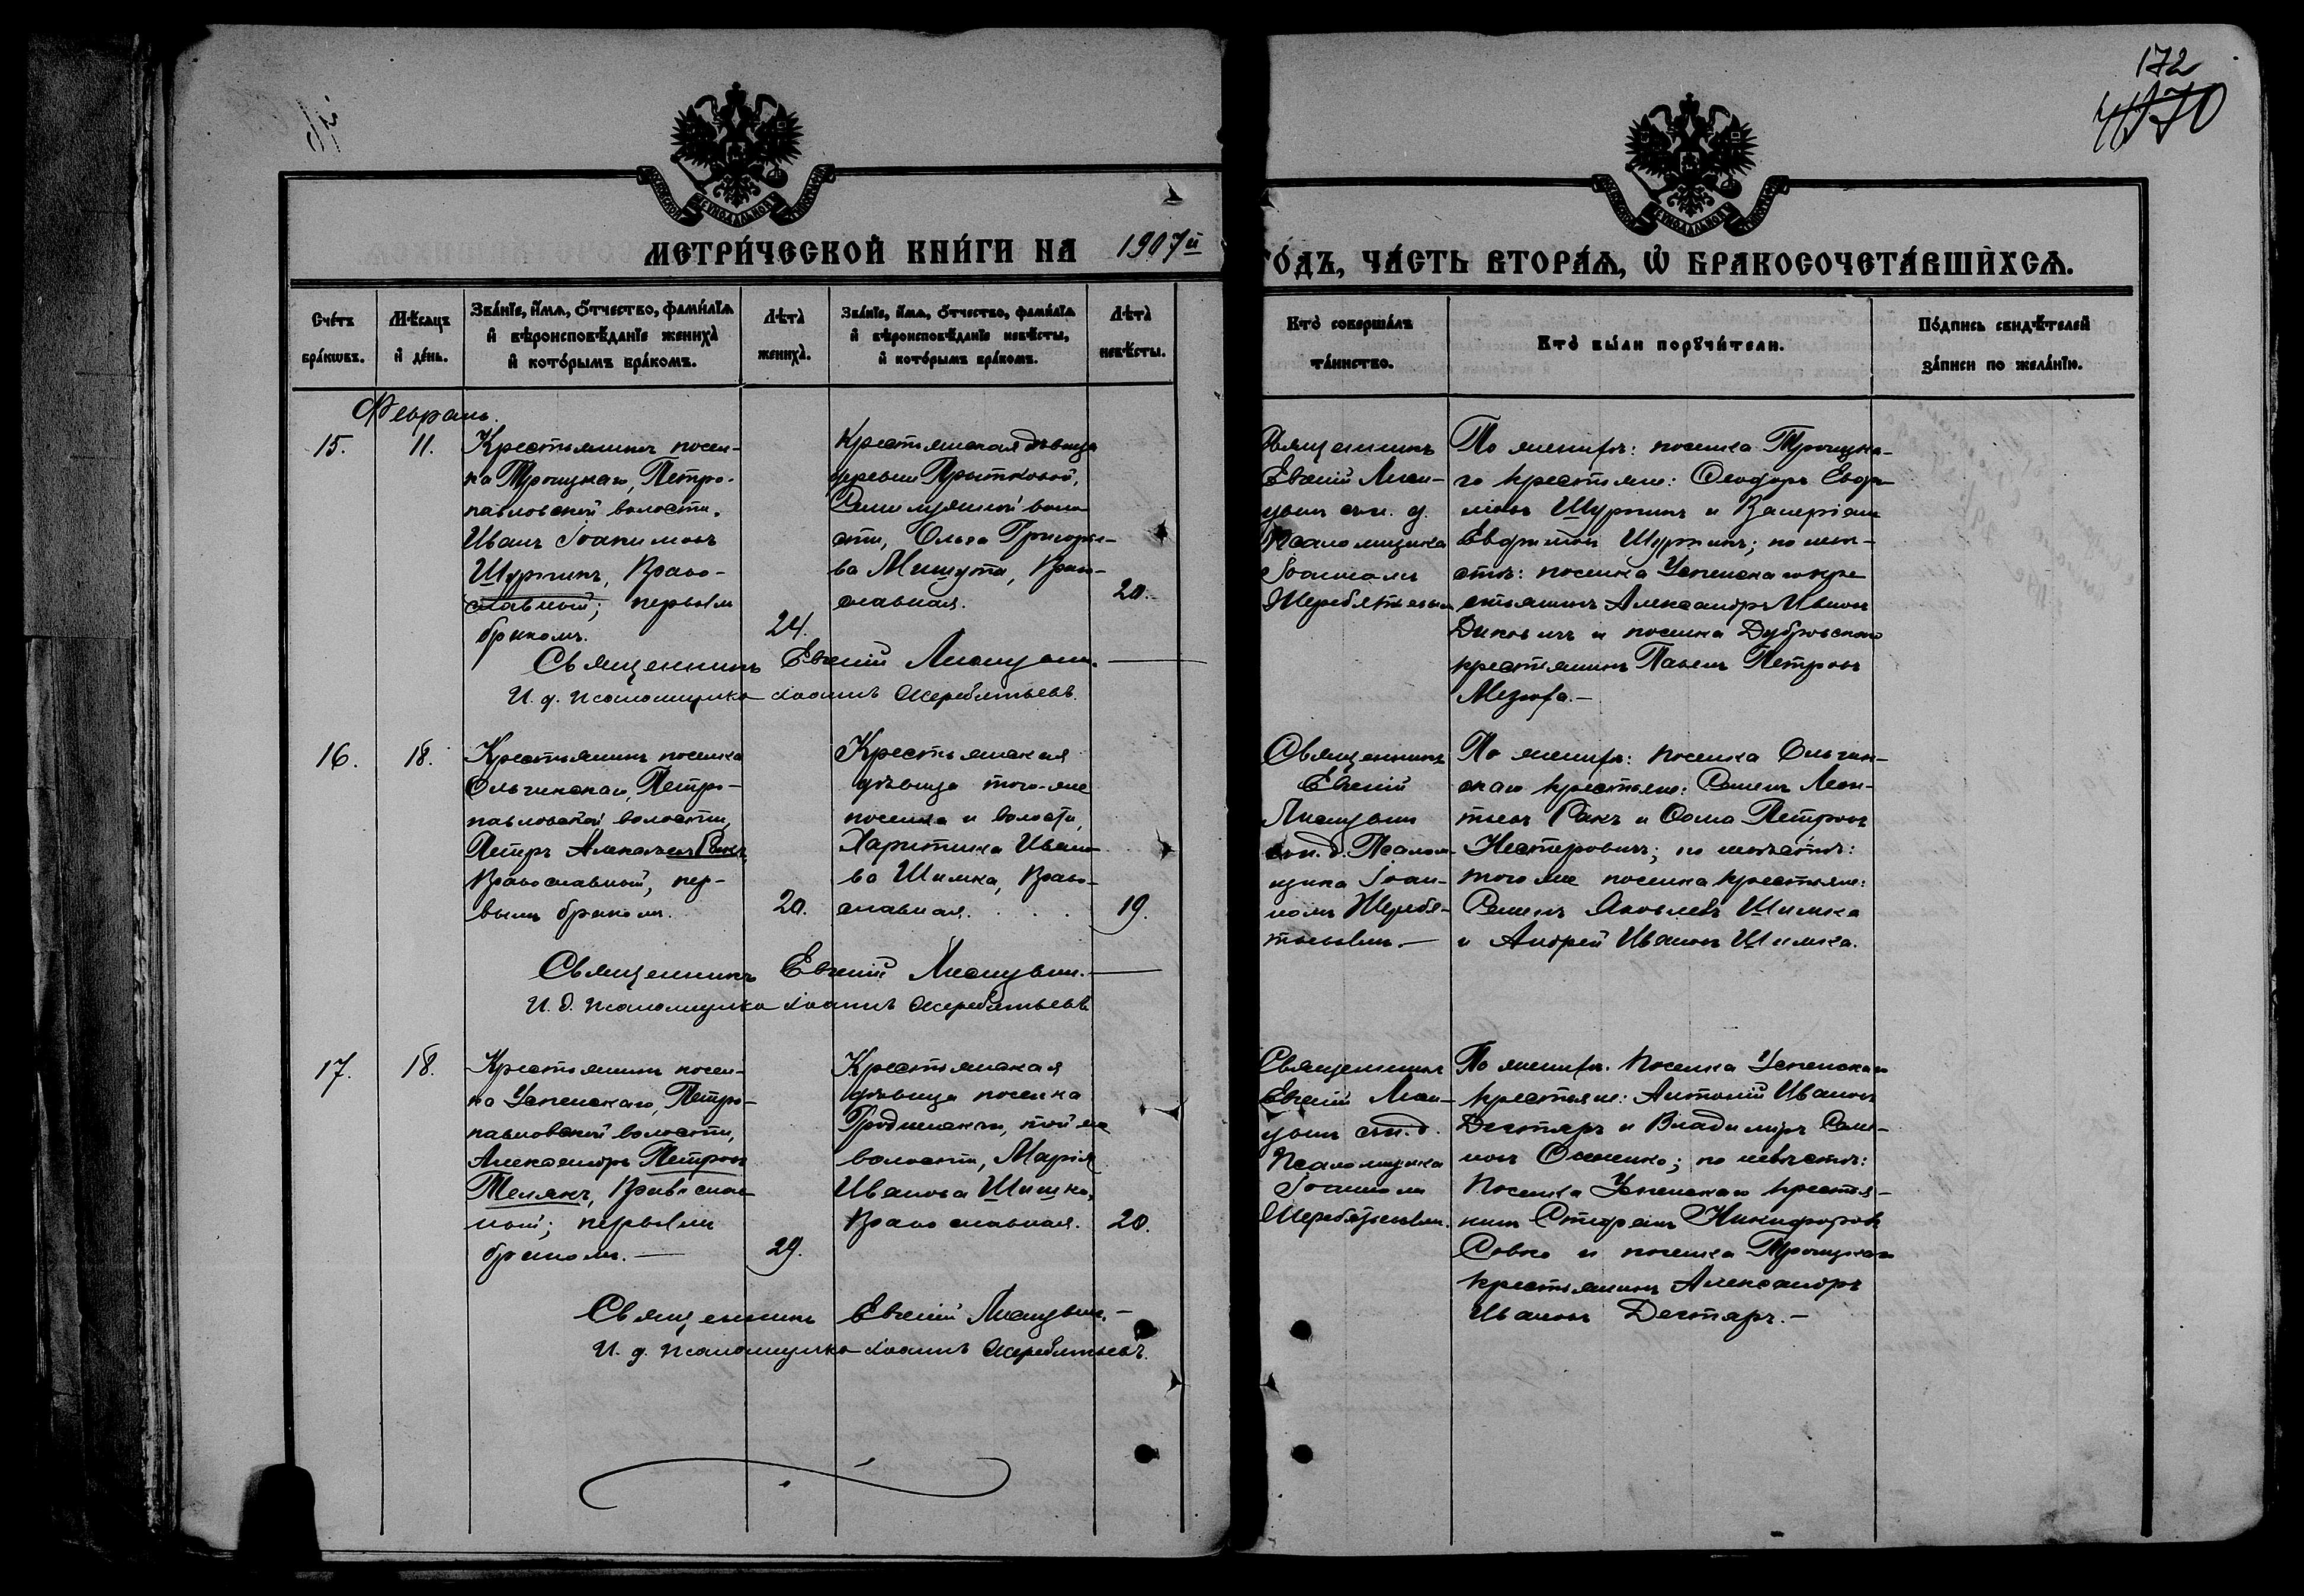 172
170
МЕТРИ́ЧЕСКОЙ КНИ́ГИ НА 1907й
ГО́ДЪ, ЧА́СТЬ ВТОРА́Ѧ, Ѡ҆ БРАКОСОЧЕТА́ВШИХСѦ.
Сче́тъ бра́кѡвъ.
Мѣ́сѧцъ и҆ де́нь.
Зва́нїе, и҆́мѧ, ѻ҆́тчество, фами́лїѧ и҆ вѣроисповѣ́данїе жениха̀ и҆ кото́рымъ бра́комъ.
Лѣ́та жениха̀.
Зва́нїе, и҆́мѧ, ѻ҆́тчество, фами́лїѧ и҆ вѣроисповѣ́данїе невѣ́сты, и҆ кото́рымъ бра́комъ.
Лѣ́та невѣ́сты.
Кто̀ соверша́лъ та́инство.
Кто̀ бы́ли порꙋчи́тели.
По́дпись свидѣ́телей за́писи по жела́нїю.
Февраль.
15.
11.
Крестьянинъ посел-
ка Троицкаго, Петро-
павловской волости,
Иванъ Іоакимовъ
Шуркинъ, Право-
славный; первымъ
бракомъ.
24.
Крестьянская дѣвица
деревни
воло-
сти, Ольга Григорье-
ва Мишута, Право-
славная.
20.
Священникъ
Евгеній Лиси-
цынъ съ и. д.
Псаломщика
Іоанномъ
Жеребятьевымъ
По женихѣ: поселка Троицка-
го крестьяне: Ѳеодоръ Евфи-
мовъ Шуркинъ и Валеріанъ
Евфимовъ Шуркинъ; по невѣ-
стѣ: поселка Успенскаго кре-
стьянинъ Александръ Ивановъ
и поселка Дубровскаго
крестьянинъ Павелъ Петровъ
Священникъ Евгеній Лисицынъ.
И. д. псаломщика Іоаннъ Жеребятьевъ.
16.
18.
Крестьянинъ поселка
Ольгинскаго, Петро-
павловской волости,
Петръ Ракъ,
Православный, пер-
вымъ бракомъ.
20.
Крестьянская
дѣвица того-же
поселка и волости,
Харитина Ивано-
ва Шимка, Право-
славная.
19.
Священникъ
Евгеній
Лисицынъ
съ и. д. Псалом-
щика Іоан-
номъ Жеребя-
тьевымъ.
По женихѣ: поселка Ольгин-
скаго крестьяне: Семенъ Леон-
тьевъ Ракъ и Ѳома Петровъ
Нестеровичъ; по невѣстѣ:
того же поселка крестьяне:
Семенъ Яковлевъ Шимка
и Андрей Ивановъ Шимка.
Священникъ Евгеній Лисицынъ.
И. д. псаломщика Іоаннъ Жеребятьевъ
17.
18.
Крестьянинъ посел-
ка Успенскаго, Петро-
павловской волости,
Александръ Петровъ
Телякъ, Православ-
ный; первымъ
бракомъ.
29.
Крестьянская
дѣвица поселка
Гродненскаго, той же
волости, Марія
Иванова Шишко,
Православная.
20.
Священникъ
Евгеній Лиси-
цынъ съ и. д.
Псаломщика
Іоанномъ
Жеребятьевымъ.
По женихѣ: Поселка Успенскаго
крестьяне: Антоній Ивановъ
Дегтяръ и Владиміръ Семе-
новъ; по невѣстѣ:
Поселка Успенскаго крестья-
нинъ Стефанъ Никифоровъ
Совко и поселка Троицкаго
крестьянинъ Александръ
Ивановъ Дегтяръ.
Священникъ Евгеній Лисицынъ.
И. д. псаломщика Іоаннъ Жеребятьевъ.